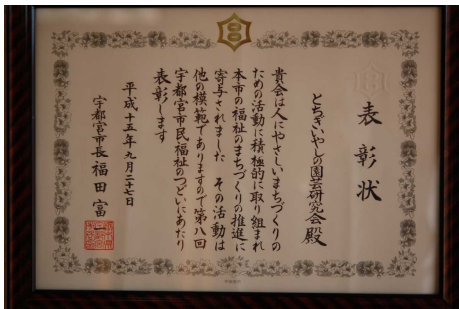 表彰状
とちぎいやしの園芸研究会殿
貴会は人にやさしいまちづくりの
ための活動に積極的に取り組まれ
本市の福祉のまちづくりの推進に
寄与されました その活動は
他の模範でありますので第八回
宇都宮市民福祉のつどいにあたり
表彰します
平成十五年九月二十七日
宇都宮市長 福田富一